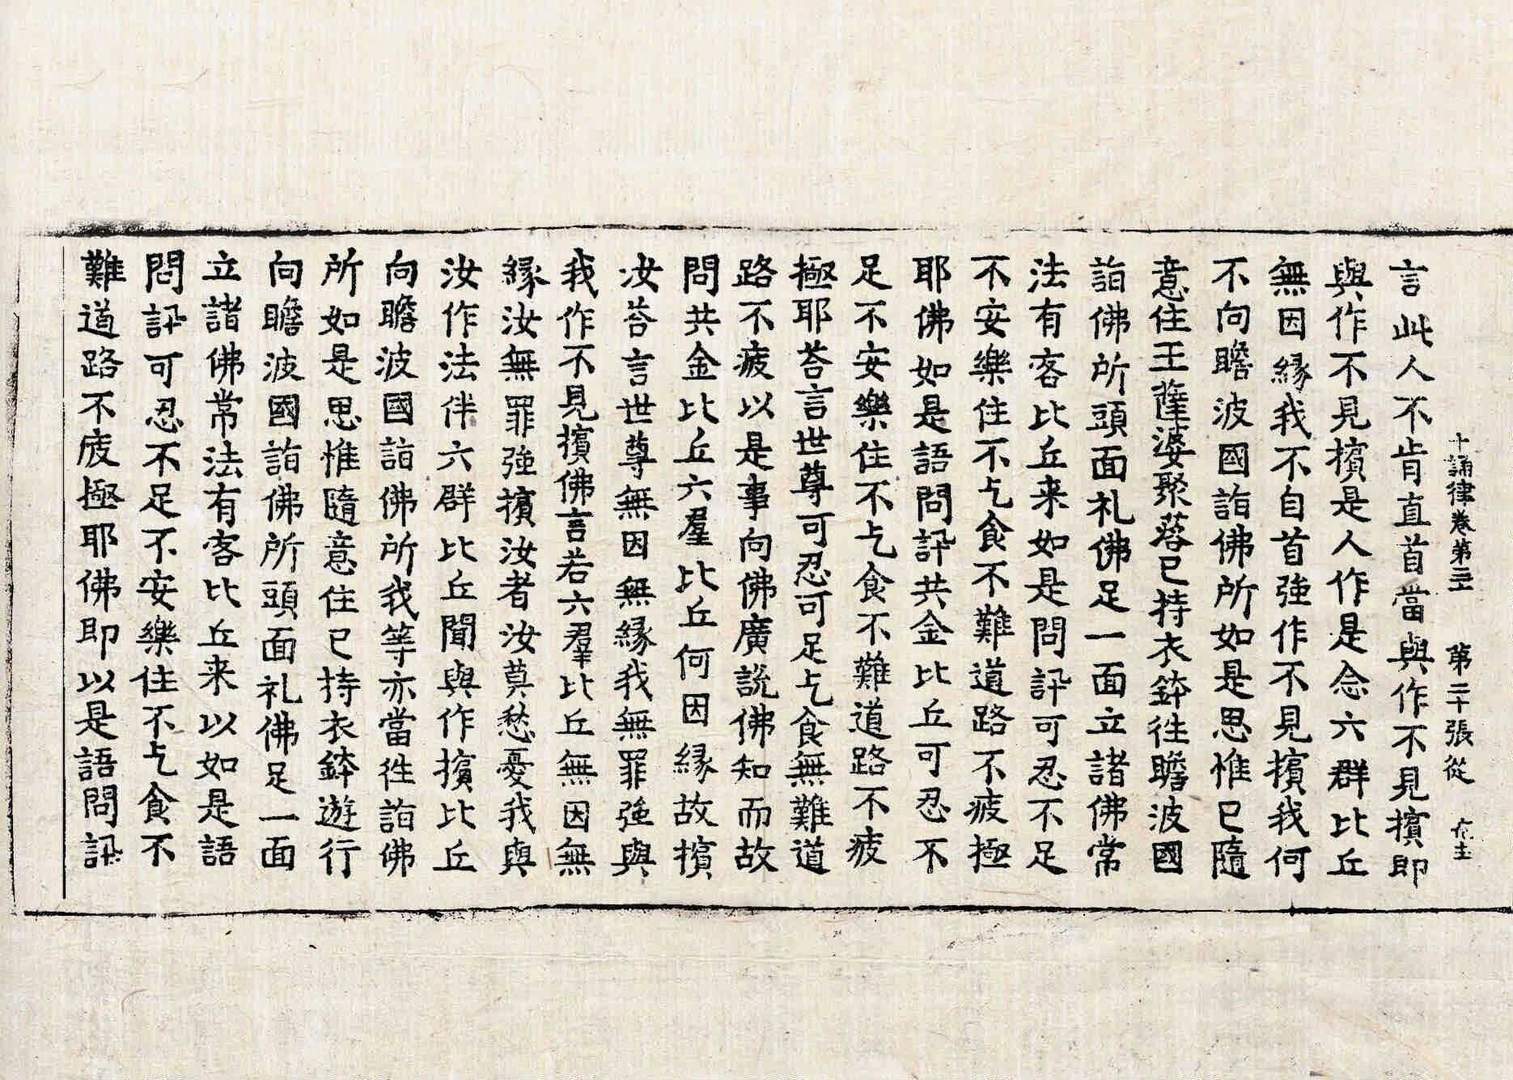 十誦律卷第三十 第二十張 從
言此人不肯直首當與作不見擯即
與作不見擯是人作是念六群比丘
無因緣我不自首強作不見擯我何
不向瞻波國詣佛所如是思惟已隨
意住王薩婆聚落已持衣鉢往瞻波國
詣佛所頭面礼佛足一面立諸佛常
法有客比丘来如是問訊可忍不足
不安樂住不乞食不難道路不疲極
耶佛如是語問訊共金比丘可忍不
足不安樂住不乞食不難道路不疲
極耶荅言世尊可忍可足乞食無難道
路不疲以是事向佛廣說佛知而故
問共金比丘六羣比丘何因緣故擯
汝荅言世尊無因無緣我無罪強與
我作不見擯佛言若六羣比丘無因無
緣汝無罪強擯汝者汝莫愁憂我與
汝作法伴六群比丘聞與作擯比丘
向瞻波國詣佛所我等亦當往詣佛
所如是思惟隨意住已持衣鉢遊行
向瞻波國詣佛所頭面礼佛足一面
立諸佛常法有客比丘来以如是語
問訊可忍不足不安樂住不乞食不
難道路不疲極耶佛即以是語問訊